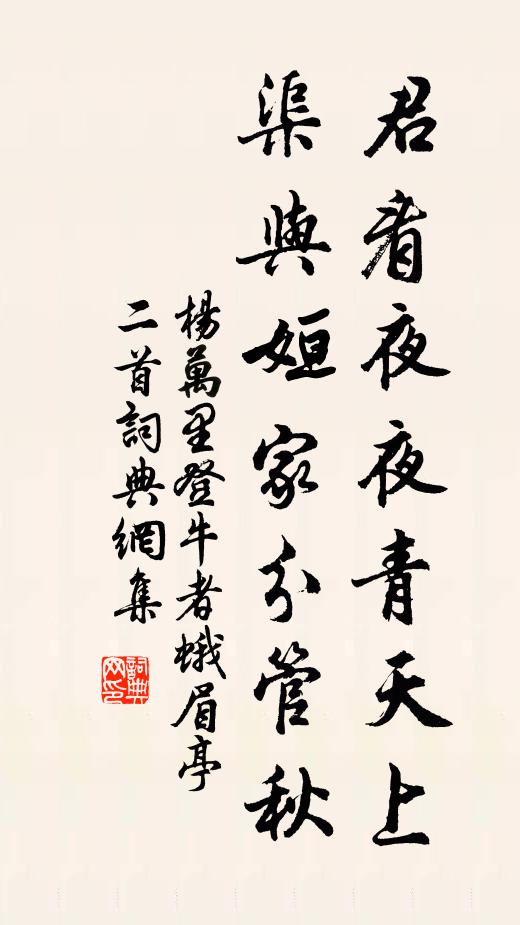 君看夜夜青天上
渠與姮家分管秋
楊萬里登牛者蛾眉亭
二首詞典網集
詞典網印